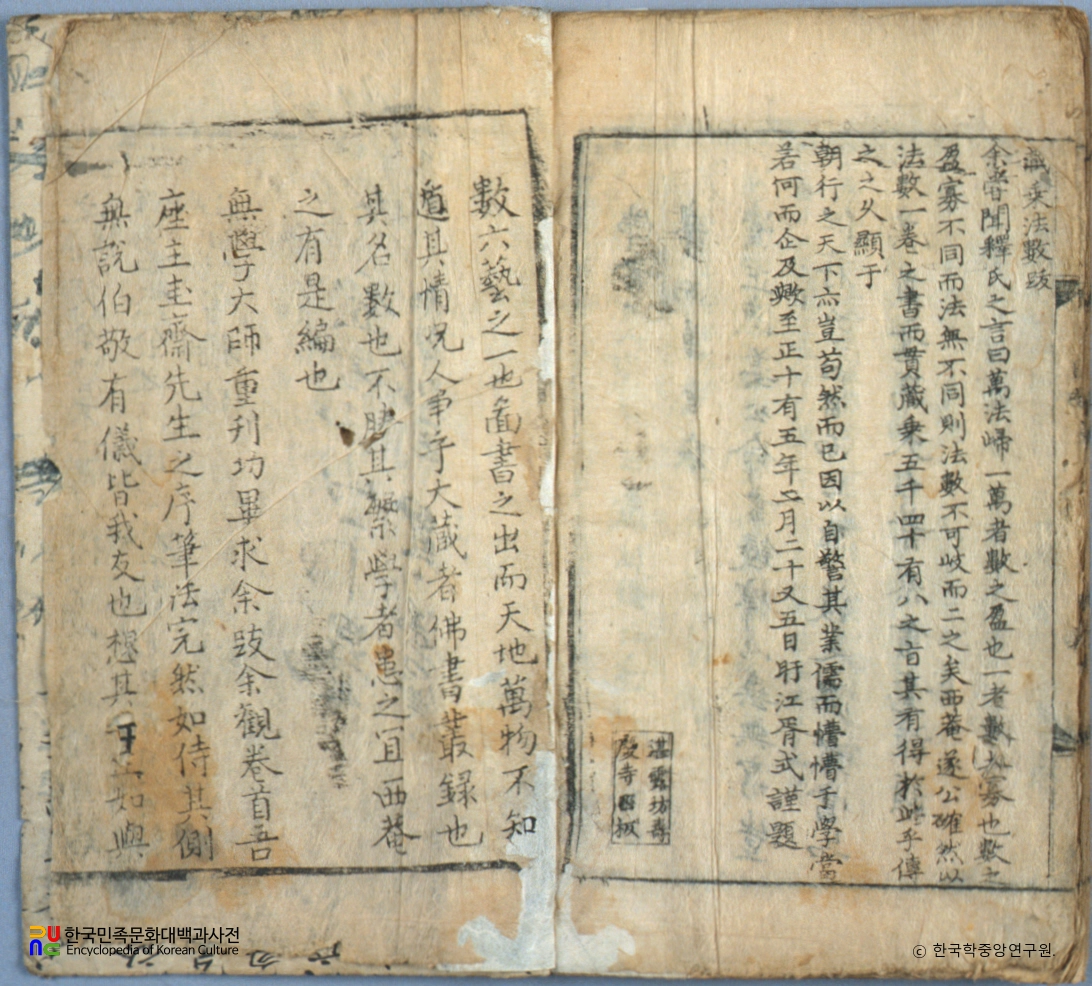 藏乘法數跋
余嘗聞釋氏之言曰萬法歸一萬者數之盈也一者數之寡也數之
盈寡不同而法無不同則法數不可岐而二之矣西菴遂公確然以
法數一卷之書而貫藏乘五千四十有八之言其有得於此乎傳
之之久顯于
朝行之天下亦豈苟然而已因以自警其業儒而懵懵于學當
若何而企及歟至正十有五年二月二十又五日盱江胥式謹題
數六藝之一也啚書之出而天地萬物不知
遁其情況人爭乎大藏者佛書叢錄也
其名數也不勝其繁學者患之宜西菴
之有是編也
無學大師重刊功畢求余跋余觀卷首吾
座主圭齋先生之序筆法完然如侍其側
無說伯敬有儀皆我友也想其 如與
한국민족문화대백과사전
Encyclopedia of Korean Culture
© 한국학중앙연구원.